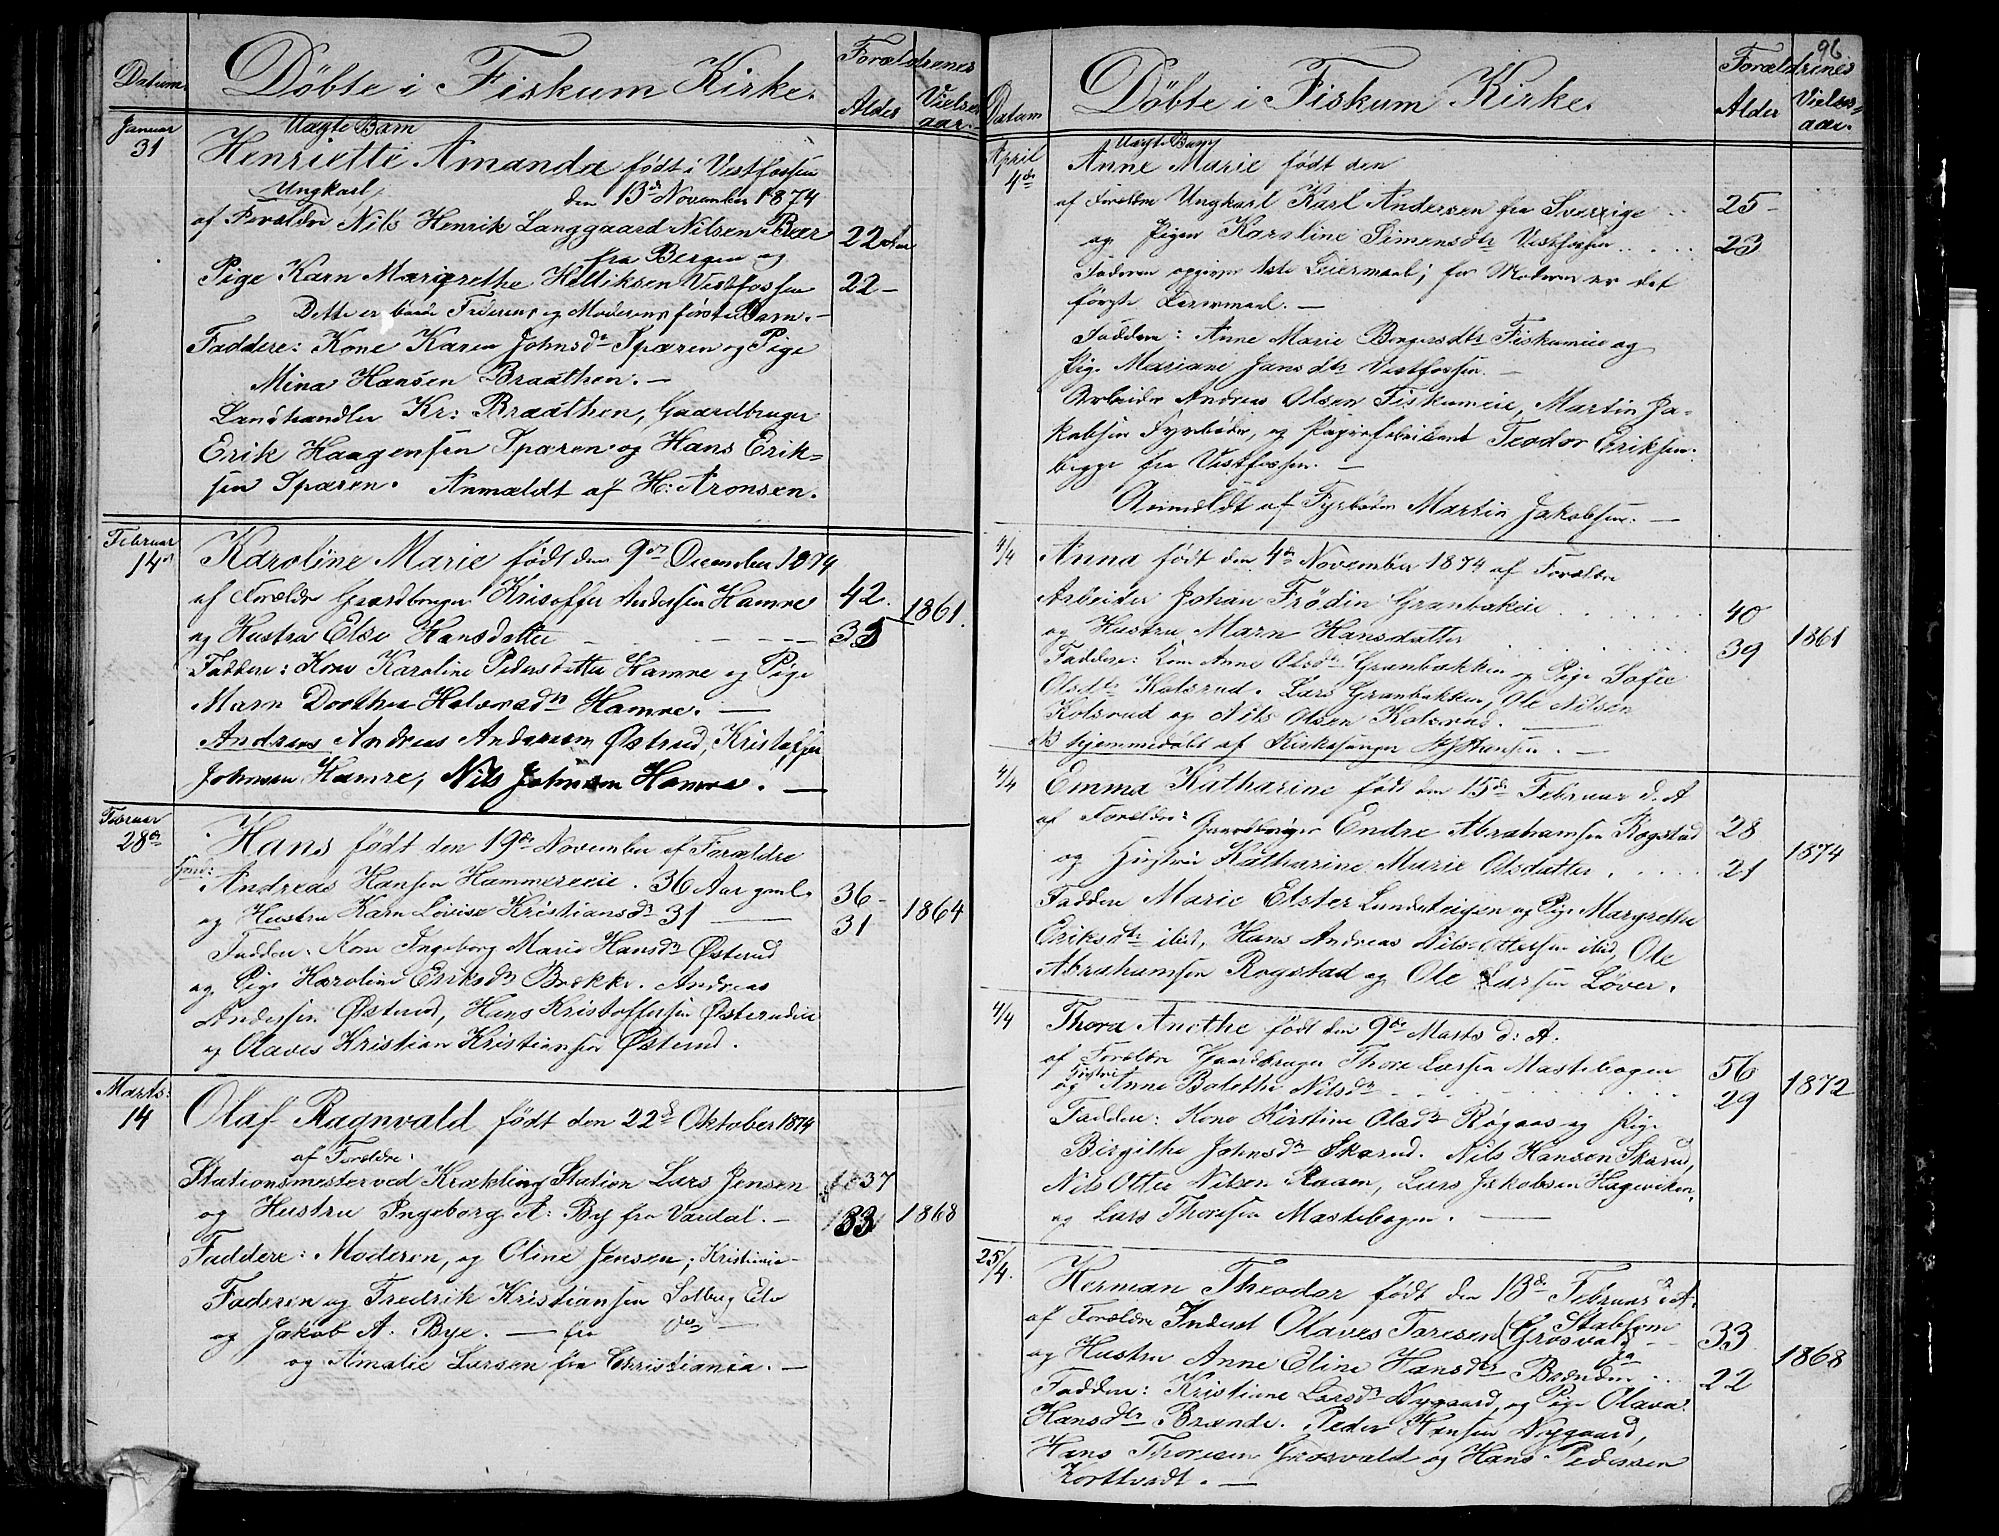 Datum. Döbte i Fiskum Kirke. Forældrenes
Alder Vielses-
aar.
Januar
31
Uægte Barn
Henriette Amanda født i Vestfossen
Ungkarl den 13de November 1874
af Forældre Nils Henrik Langgaard Nilsen Beer 22
fra Bergen og
Pige Karn Margrethe Vestfossen 22 -
Dette er baade Faderens og Moderens første Barn. -
Faddere: Kone Karen Johnsdr Sparen og Pige
Mina Hansen Braathen. -
Landhandler Kr: Braathen, Gaardbruger
Erik Haagensen Sparen og Hans Erik=
sen Sparen. Anmældt af H: Aronsen.
Februar
14
Karoline Marie født den 9de December 1874
af Forældre Gaardbruger Kristoffer Andersen Hamre 42. 1861.
og Hustru Else Hansdatter 35
Faddere: Kone Karoline Pedersdatter Hamre og Pige
Marn Dorthea Halvorsdr Hamre. -
Andreas Andreas Andersen Østrud, Kristoffer
Johnsen Hamre, Nils Johnsen Hamre. -
Februar
28de
Hans født den 19de November af Forældre
Andreas Hansen Hammereeie. 36 Aar gml. 36 -
og Hustru Karn Lovise Kristiansdr 31 31 1864
Faddere: Kone Ingeborg Marie Hansdr Østerud
og Pige Karoline Eriksdr Brekke. Andreas
Andersen Østerud, Hans Kristoffersen Østerudeie
og Olaves Kristian Kristiansen Østerud.
Marts:
14
Olaf Ragnvald født den 22d Oktober 1874
af Forældre:
Stationsmester ved Krekling Station Lars Jensen 1837
og Hustru Ingeborg A: By fra Vardal. - 1868
Faddere: Moderen, og Oline Jensen, Kristiania -
Faderen og Fredrik Kristiansen Solberg Elv
og Jakob A. Bye. - fra do -
og Amalie Larsen fra Christiania. -
96
Datum Döbte i Fiskum Kirke. Forældrenes
Alder Vielses-
aar.
April
4de
Uægte Barn
Anne Marie født den
af Forældre Ungkarl Karl Andersen fra Sverrige .. 25 -
og Pigen Karoline Simensdtr Vestfossen .... 23
Faderen opgiver 1ste Leiermaal; for Moderen er det
første Leiermaal. -
Faddere: Anne Marie Borgersdtr Fiskumeie og
Pige Mariane Jansdtr Vestfossen. -
Arbeider Andreas Olsen Fiskumeie, Martin Ja-
kobsen Fyrbøder, og Papirfabrikant Teodor Eriksen
begge fra Vestfossen. -
Anmeldt af Fyrbøder Martin Jakobsen. -
4/4
Anna født den 4de November 1874 af Forældre
Arbeider Johan Frödin Granbækeie 40
og Hustru Marn Hansdatter 39 1861
Faddere: Kone Anne Olsdtr Granbækken og Pige Sofie
Olsdtr Kolsrud. Lars Granbækken, Ole Nilsen
Kolsrud og Nils Olsen Kolsrud. -
NB Hjemmedøbt af Kirkesanger Hansen. -
4/4
Emma Katharine født den 15de Februar d. A
af Forældre: Gaardbruger Endre Abrahamsen Rogstad 28 1874
og Hustru Katharine Marie Olsdatter. 21
Faddere Marie Elster Lundsteigen og Pige Margrethe
Eriksdtr ibid, Hans Andreas Nils Ottersen ibid, Ole
Abrahamsen Rogstad og Ole Larsen Løver.
4/4
Thora Anethe født den 9de Marts d: A.
af Forældre Gaardbruger Thore Larsen Mastebogen 56
Hustru
og Anne Bolethe Nilsdr 29 1872
Faddere: Kone Kirstine Olsdr Røgaas og Pige
Birgithe Johnsdr Skarud. Nils Hansen Skarud,
Nils Otter Nilsen Raaen, Lars Jakobsen Hageviken,
og Lars Thoresen Mastebogen. -
25/4.
Herman Theodor født den 13de Februar d. A.
Stablom
af Forældre Inderst Olaves Toresen (Grosvold 33
og Hustru Anne Eline Hansdtr 22 1868
Faddere: Kristiane Larsdr Nygaard, og Pige Olava
Hansdtr Brænde. Peder Hansen Nygaard,
Hans Thoresen Grosvold og Hans Pedersen
Korttvedt. -